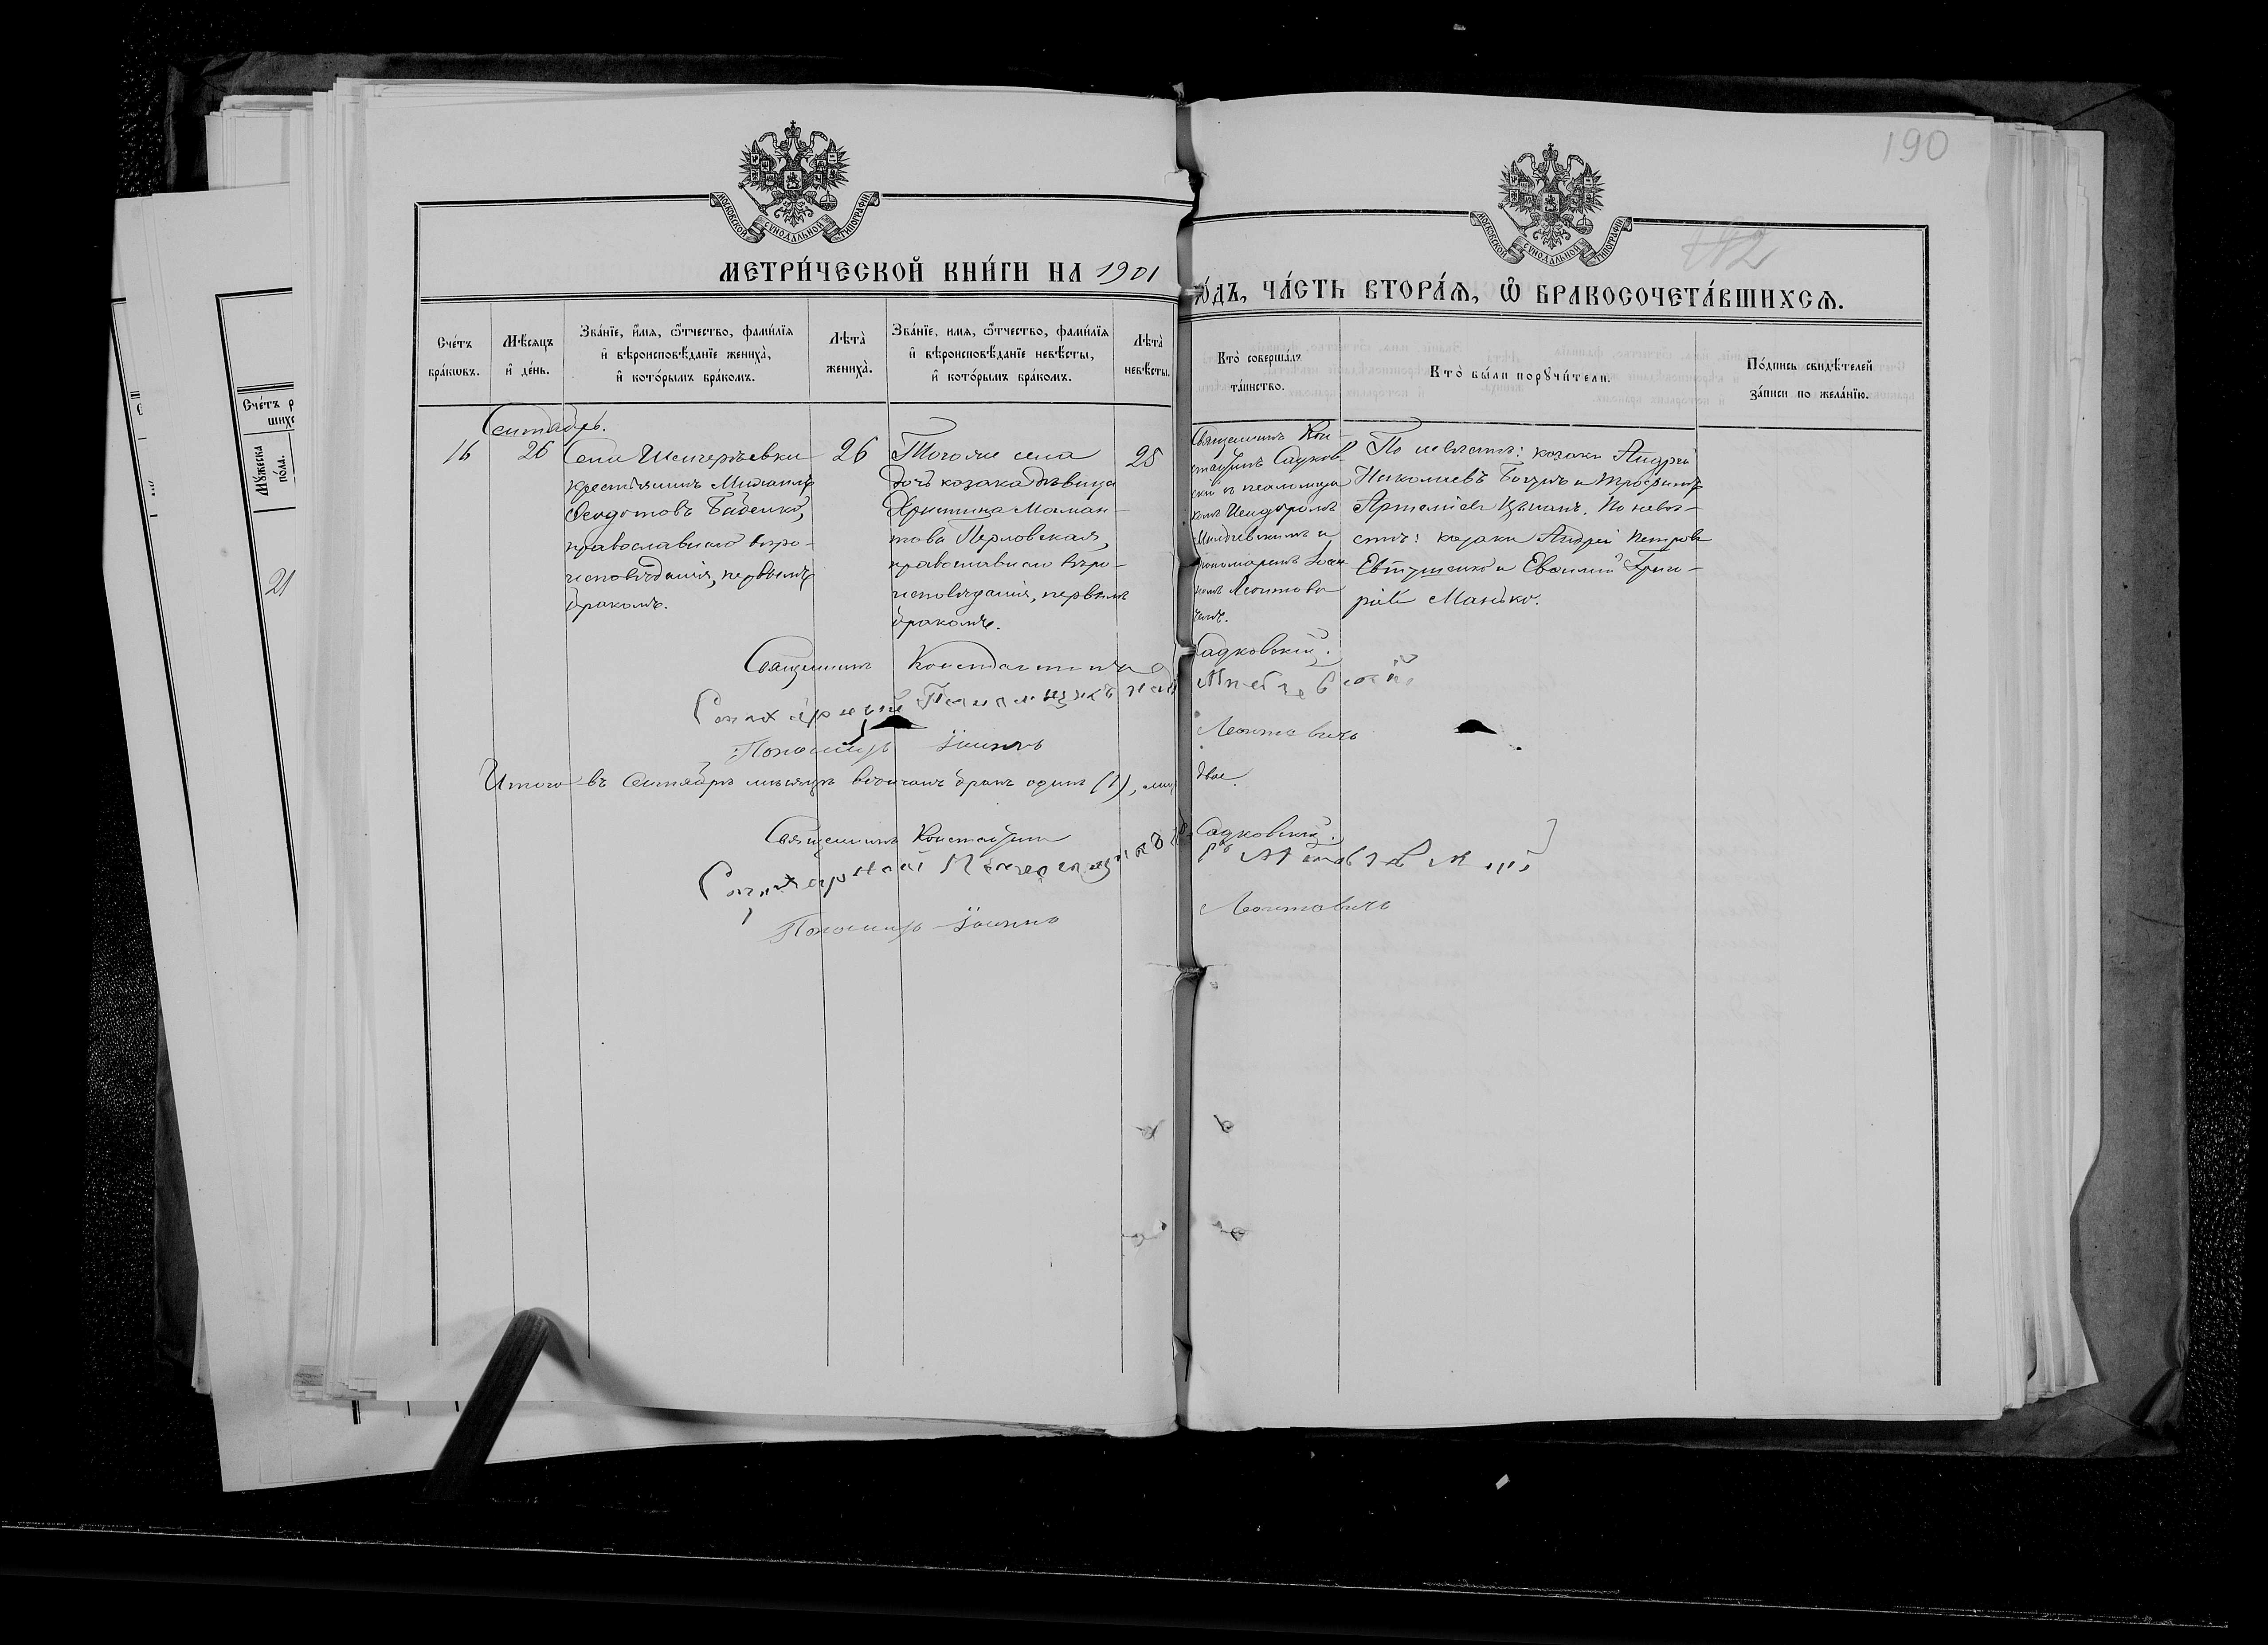 190
МОСКОВСКОЙ СУНОДАЛЬНОЙ ТИПОГРАФІИ
МОСКОВСКОЙ СУНОДАЛЬНОЙ ТИПОГРАФІИ
МЕТРИ́ЧЕСКОЙ КНИ́ГИ НА 1901
ГО́ДЪ, ЧА́СТЬ ВТОРА́Я, Ѽ БРАКОСОЧЕТА́ВШИХСЯ.
Сче́тъ бра́ковъ.
Мѣ́сяцъ и҆ де́нь.
Зва́нїе, и҆́мя, ѻ҆́тчество, фами́лїя
и҆ вѣроисповѣ́данїе жениха̀,
и҆ кото́рымъ бра́комъ.
Лѣта̀ жениха̀.
Зва́нїе, имя, ѻ҆́тчество, фами́лїя
и҆ вѣроисповѣ́данїе невѣ́сты,
и҆ кото́рымъ бра́комъ.
Лѣта̀ невѣ́сты.
Кто̀ соверша́лъ
та́инство.
Кто̀ бы́ли порꙋчи́тели.
По́дпись свидѣ́телей
за́писи по жела́нїю.
Сче́тъ р
шихс
Мꙋ́жеска
по́ла.
21
Сентябрь.
16
26
Села
крестьянинъ Михаилъ
Ѳеодотовъ Бабенко,
православнаго вѣро-
исповѣданія, первымъ
бракомъ.
26
Того же села
дочь козака дѣвица
Христина Маман-
това Перловская,
православнаго вѣро-
исповѣданія, первымъ
бракомъ.
25
Священникъ Кон-
стантинъ Садков-
скій съ псаломщи
комъ
и
пономаремъ Іоан
номъ Леонтови
чемъ.
По : козаки Андрей
Николаевъ и Трофимъ
Артеміевъ . По невѣ-
стѣ: козаки Андрей Петровъ
Евтушенко и Евѳимій Григо-
рій Манько.
Священникъ Константинъ Садковскій.
Пономарь Іоаннъ Леонтовичъ
Итого въ Сентябрѣ мѣсяцѣ бракъ одинъ (1), лиц двое.
Священникъ Константинъ Садковскій.
Пономарь Іоаннъ Леонтовичъ